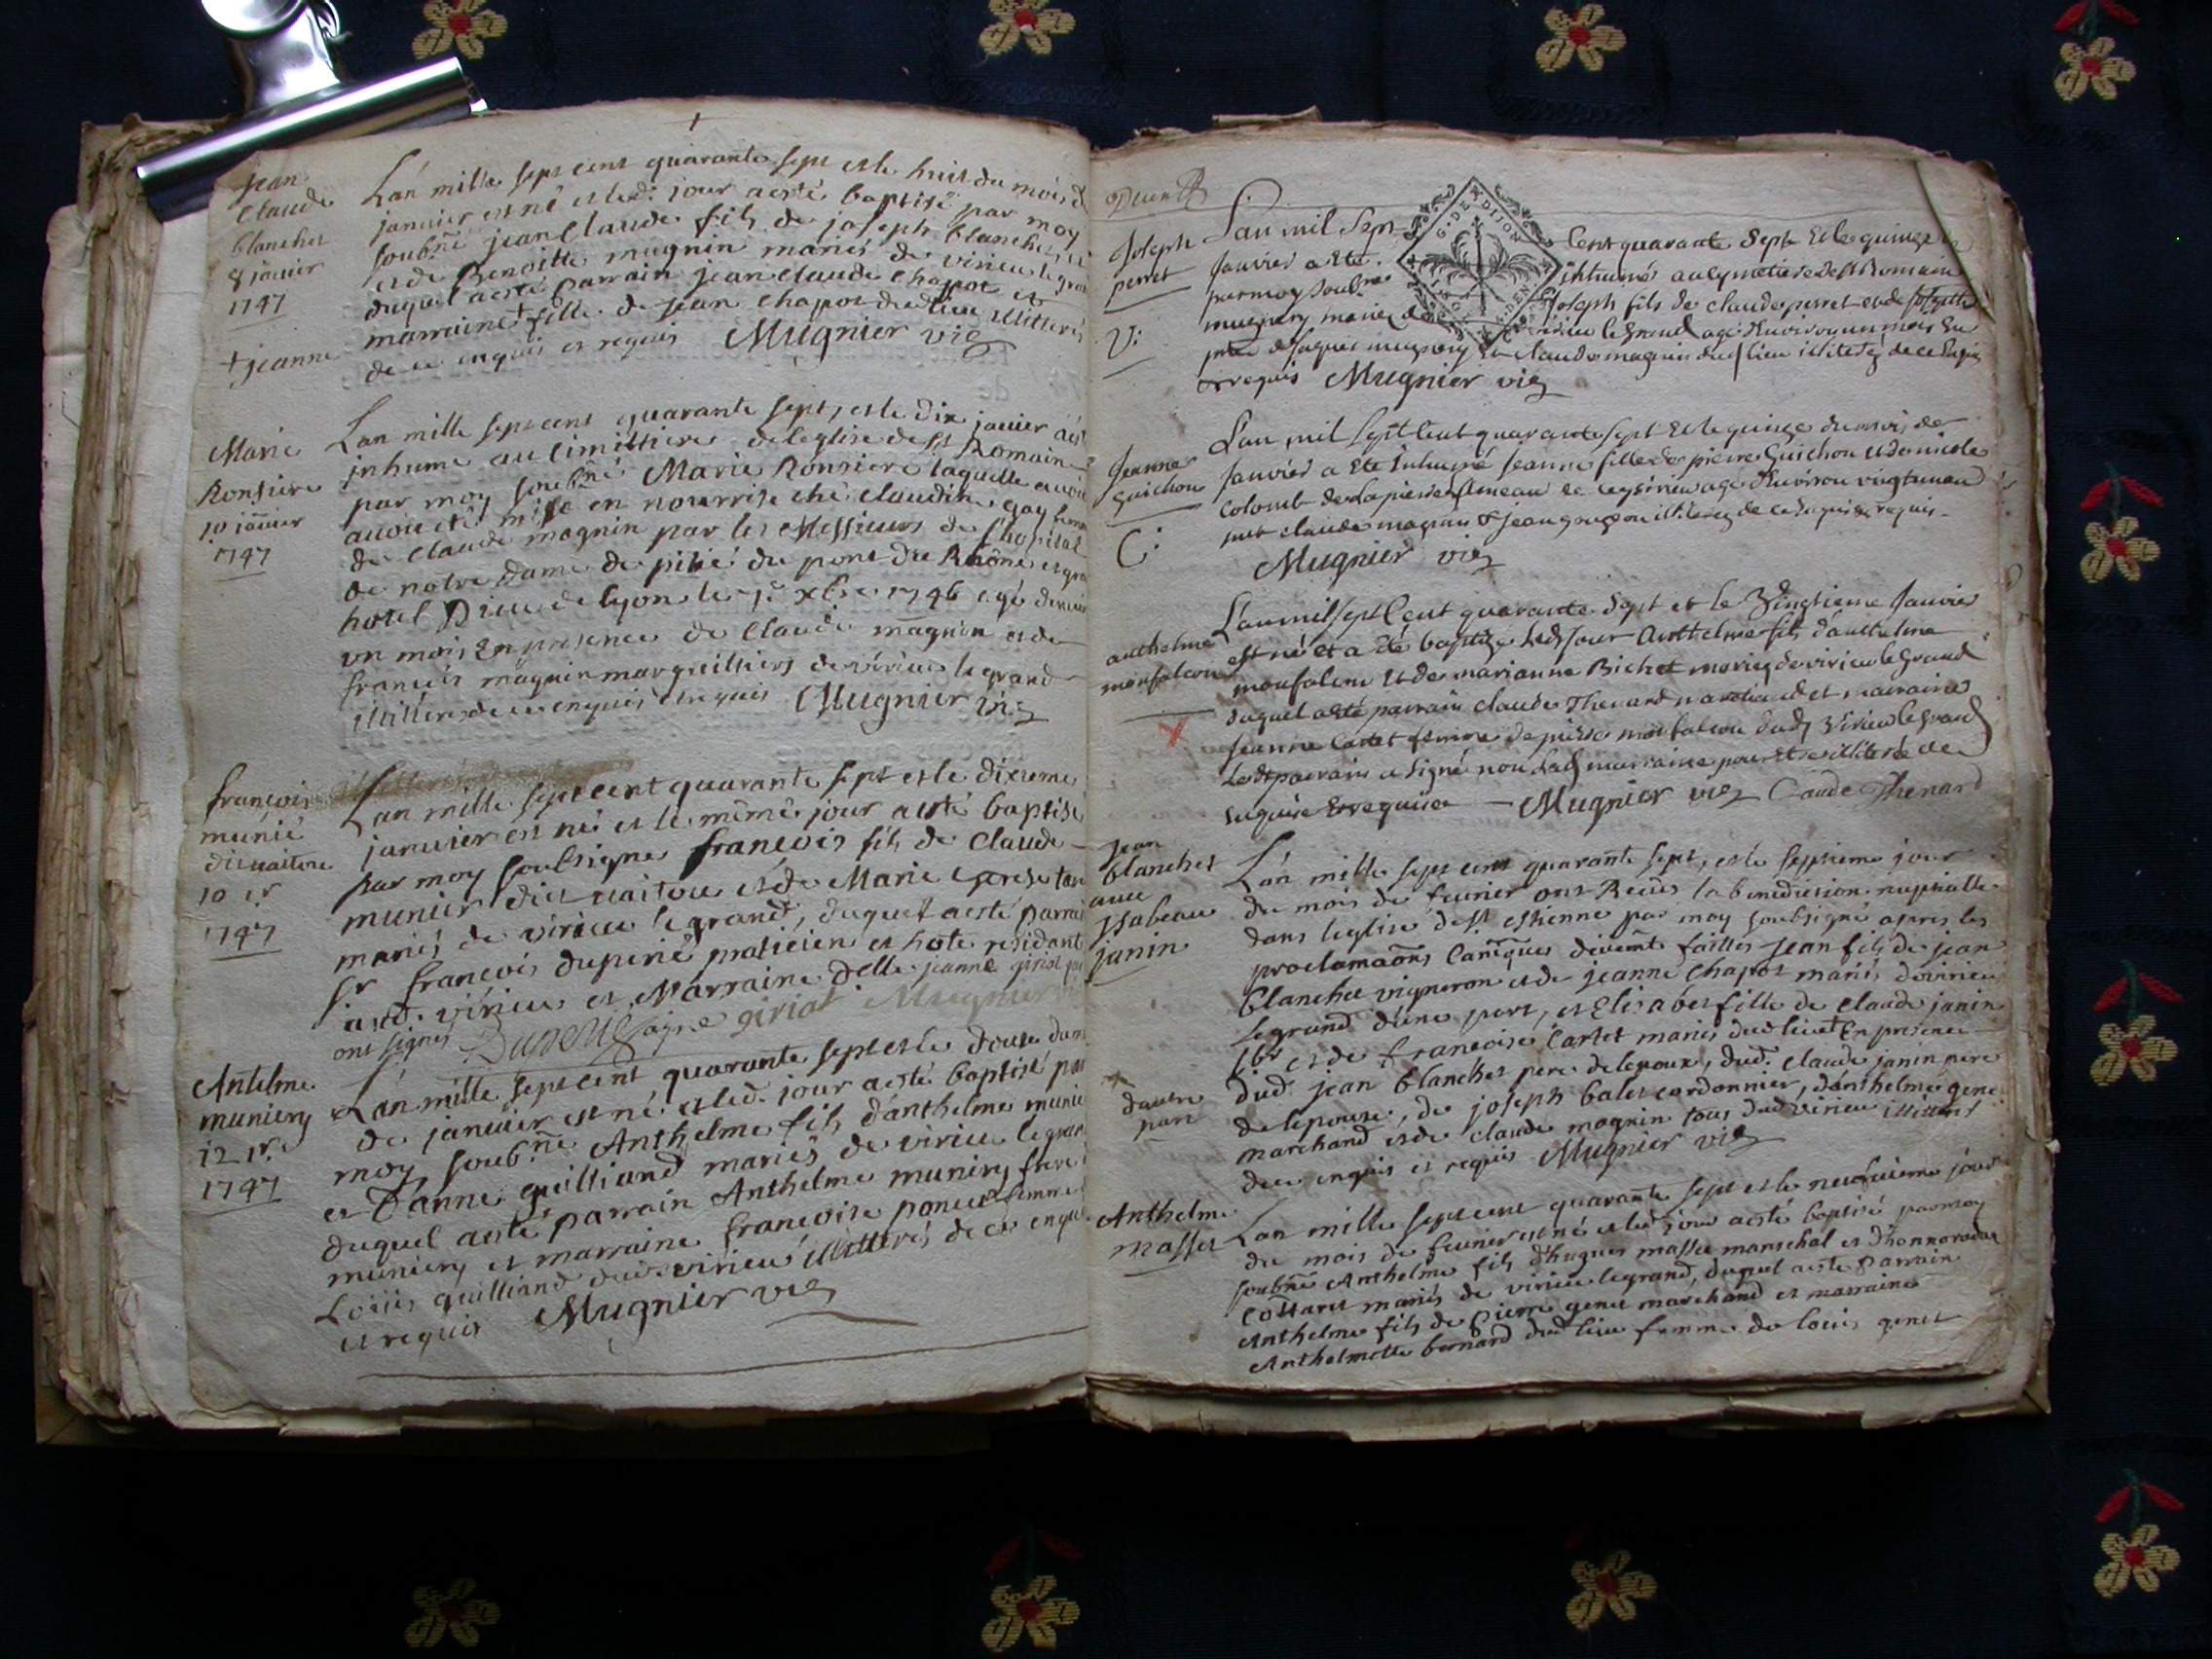 Jean
Claude
blanchet
8 janvier
1747
+ jeanne
Lán mille sept cent quarante sept et le huit du mois d
janvier est né et led. jour a esté baptisé par moy
soubné jean Claude fils de joseph blanchet, et
et de Benoitte mugnin mariés de virieu le gran
duquel a esté parrain jean claude chapot et
marraine + fille de jean chapot dud lieu illitterés
de ce enquis et requis Mugnier vic
Marie
Ronsiere
10 janvier
1747
Lan mille sept cent quarante sept, et le dix janvier a est
inhume au cimittiere de leglise de St Romain
par moy soubné Marie Ronsiere laquelle avoit
avoit eté mise en nourrise ché claudine gay femme
de claude magnin par les Messieurs de l'hopital
de notre dame de pitié du pont du Rhône et gra
hotel Dieu de lyon le xbre 1746 agé denvir
un mois en presence de Claude magnin et de
francois magnin marguilliers de virieu le grand
illitterés de ce enquis et requis Mugnier vic
francois
munié
dit
10 jr
1747
Lan mille sept cent quarante sept et le dixieme
janvier est né et le même jour a esté baptisé
par moy soubsigné francois fils de Claude
munier dit et de Marie
mariés de virieu le grand, duquel a esté parrai
sr francois duperié praticien et hote residant
aud. virieu et Marraine delle jeanne giriat
ont signés giriat Mugnier
Antelme
muniery
12 jr
1747
Lán mille sept cent quarante sept et le douze du
de janvier est né et led. jour a esté baptisé par
moy soubné Anthelme fils d'anthelme munie
et D'anne guilliand mariés de virieu le gran
duquel a esté parrain Anthelme muniery frere
muniery et marraine francoise poncet femme
Loüis guilliand dud. virieu illitterés de ce enqui
et requis Mugnier vic
Joseph
perret
V:
Lan mil Sept Cent quarante Sept Et le quinze
Janvier a Eté inhumés au Cymetiere de St Romain
par moy Soubné Joseph fils de claude perret et de
mugnery mariez de virieu le Grand agé d'environ un mois En
de Jaques mugnery Et claude magnin dud lieu illiterés de ce Enquis
Et requis Mugnier vic
G. DE DIJON
Jeanne
guichon
C:
Lan mil Sept Cent quarante sept Et le quinze du mois de
Janvier a Eté Inhumé Jeanne fille de pierre Guichon et de nicole
Colomb de Lapierre hameau de ceyzirieu agé d'environ vingt un an
claude magnin & jean illiterez de ce Enquis & requis
Mugnier vic
anthelme
monfalcon
Lan mil Sept Cent quarante Sept et le Vingtieme Janvier
est né et a été baptizé Led Jour Anthelme fils d'anthelme
monfalcon Et de marianne Bichet mariez de virieu le Grand
duquel a esté parrain claude Thenard et marraine
Jeanne Cartet femme de pierre monfalcon dud Virieu le Grand
Ledt parrain a Signé non Lad marraine pour Etre illiterée de ce
Enquise Et requise Mugnier vic Claude Thenard
jean
blanchet
avec
jsabeau
janin
+
dautre
part
Lán mille sept cent quarante sept, et le septieme jour
du mois de fevrier ont Recûs la benediction nuptialle
dans leglise de St Estienne par moy soubsigné apres les
proclamaons Canoques divemt faittes jean fils de jean
blanchet vigneron et de jeanne chapot mariés de virieu
legrand d'une part, et Elisabet fille de claude janin
et de francoise Cartet mariés dud lieu + En presence
dud jean blanchet pere delepoux, dud. claude janin pere
delepouse, de joseph balet cordonnier, danthelme genet
marchand et de claude magnin tous dud virieu illitterés
de ce enquis et requis Mugnier vic
Anthelme
massei
Lan mille sept cent quarante sept et le neufvieme jour
du mois de fevrier est né et led. jour a esté baptisé par moy
soubné Anthelme fils d'hugues massei mareschal et d'honnorade
Cottaret mariés de virieu legrand, duquel a esté parrain
Anthelme fils de Pierre genet marchand et marraine
Anthelmette bernard dud lieu femme de louis genet